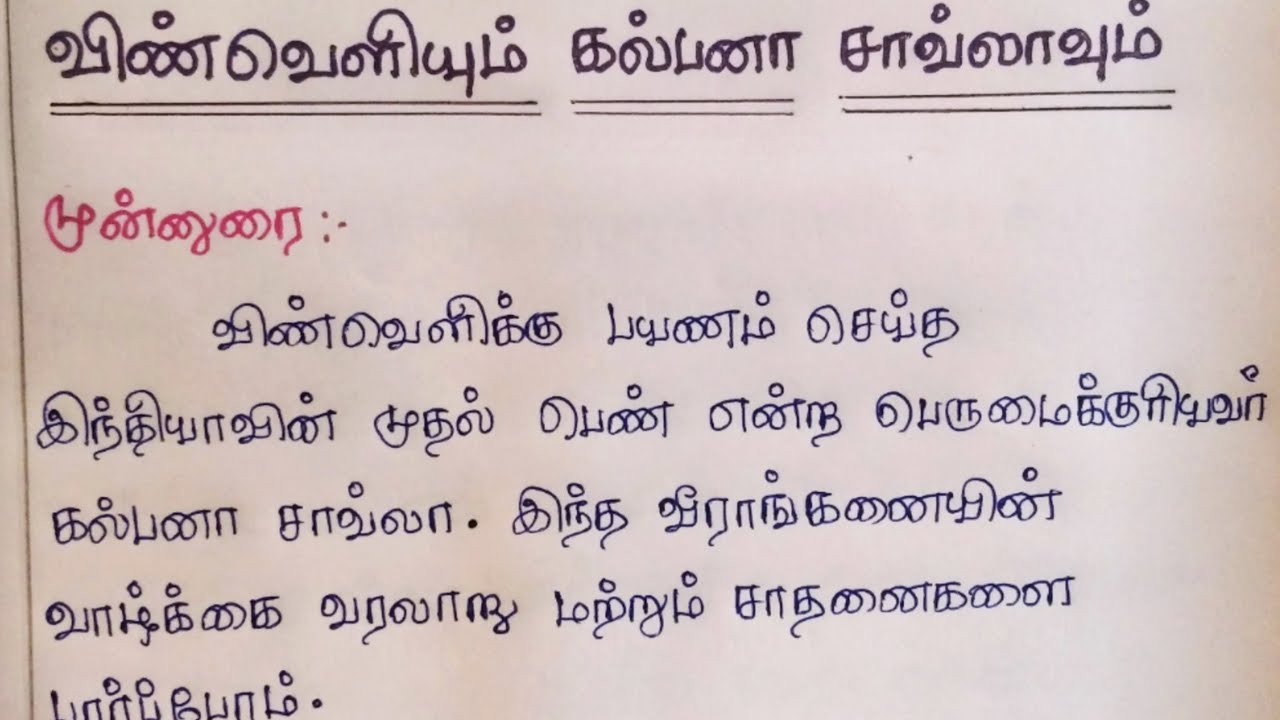 விண்வெளியும் கல்பனா சாவ்லாவும்
முன்னுரை :-
விண்வெளிக்கு பயணம் செய்த
இந்தியாவின் முதல் பெண் என்ற பெருமைக்குரியவர்
கல்பனா சாவ்லா. இந்த வீராங்கனையின்
வாழ்க்கை வரலாறு மற்றும் சாதனைகளை
பார்ப்போம்.